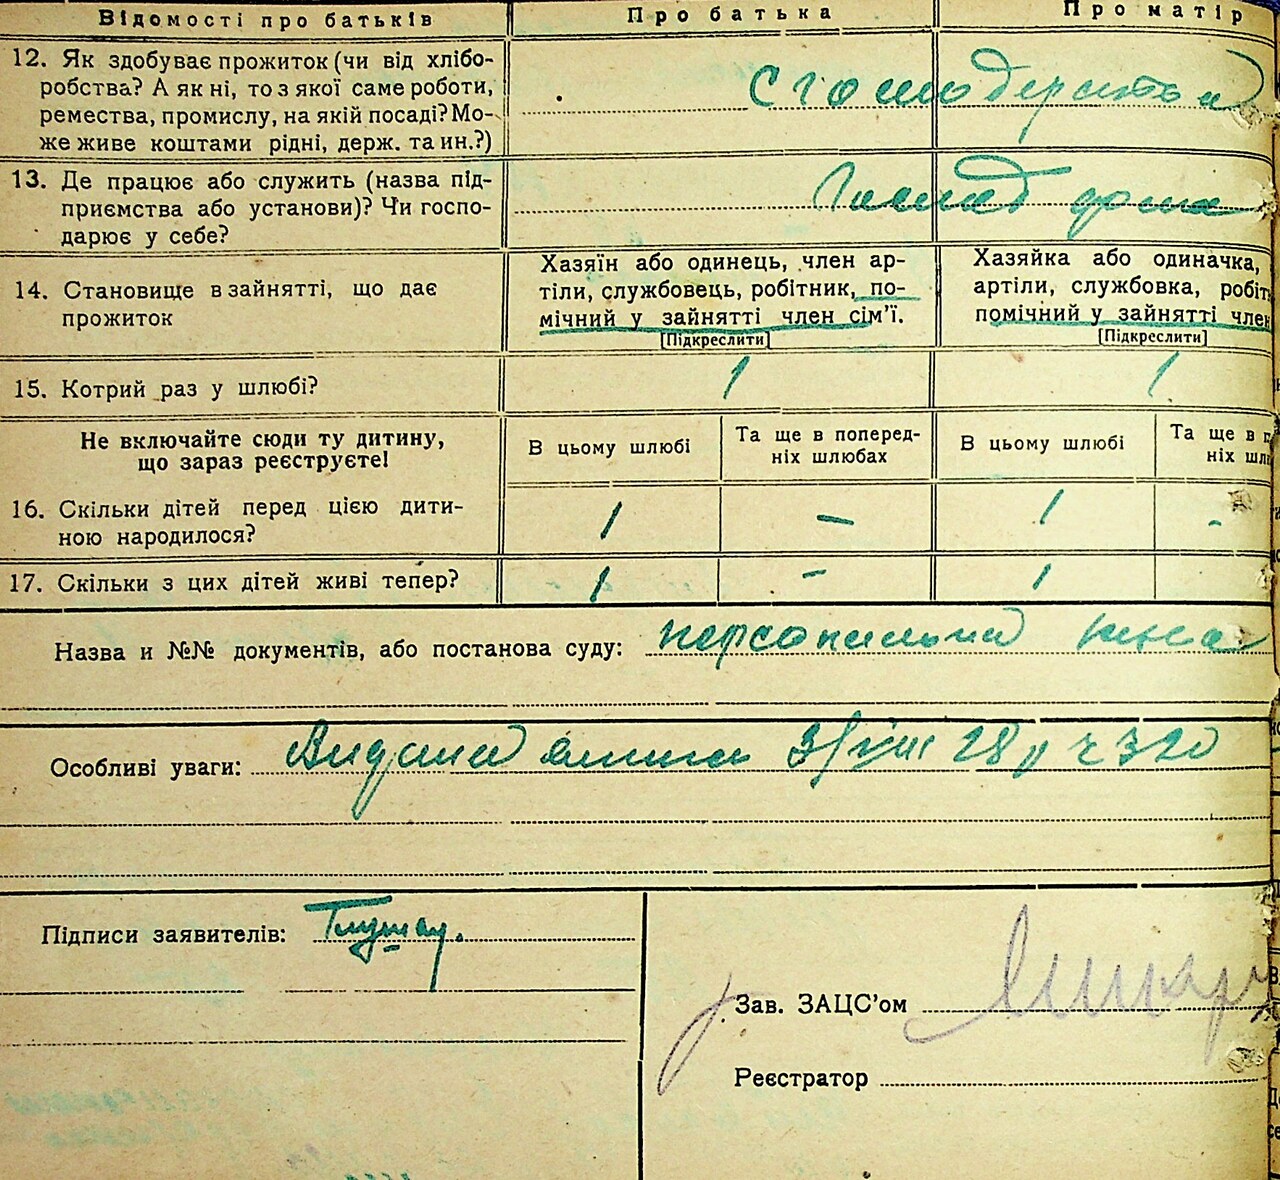 Відомості про батьків Про батька Про матір
12. Як здобуває прожиток (чи від хлібо-
робства? А як ні, то з якої саме роботи,
ремества, промислу, на якій посаді? Мо-
же живе коштами рідні, держ. та ин.?)
13. Де працює або служить (назва під-
приємства або установи)? Чи госпо-
дарює у себе?
14. Становище в зайнятті, що дає
прожиток
Хазяїн або одинець, член ар-
тіли, службовець, робітник, по-
мічний у зайнятті член сім'ї.
[Підкреслити]
Хазяйка або одиначка,
артіли, службовка, робіт
помічний у зайнятті член
[Підкреслити]
15. Котрий раз у шлюбі? 1 1
Не включайте сюди ту дитину,
що зараз реєструєте!
В цьому шлюбі
Та ще в поперед-
ніх шлюбах
В цьому шлюбі
Та ще в п
ніх шл
16. Скільки дітей перед цією дити-
ною народилося? 1 - 1 -
17. Скільки з цих дітей живі тепер? 1 - 1
Назва и №№ документів, або постанова суду:
Особливі уваги: 28 р ч 320
Підписи заявителів:
Зав. ЗАЦС'ом
Реєстратор